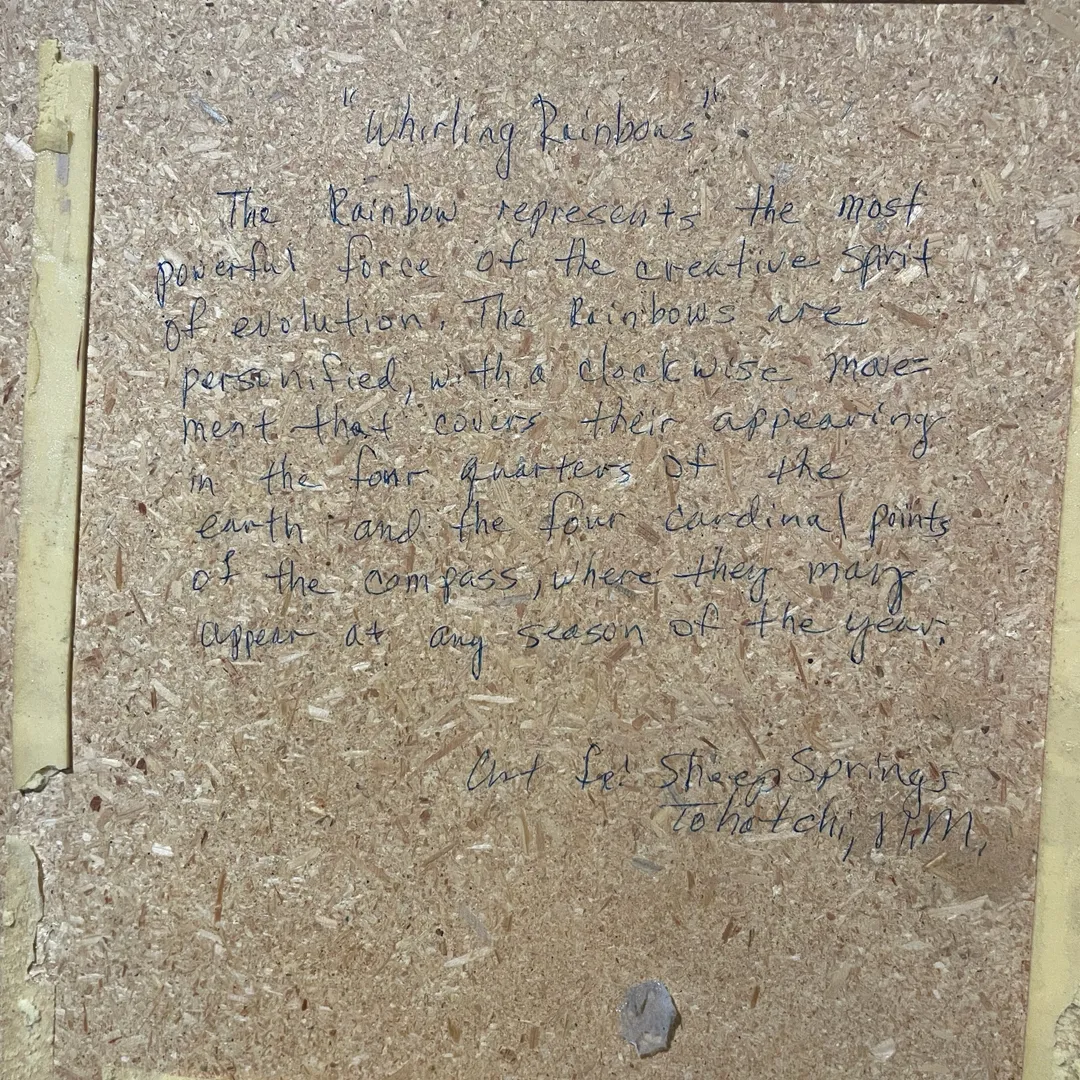 "Whirling Rainbows".
The Rainbow represents the most
powerful force of the creative Spirit
of evolution. The Rainbows are
personified, with a clockwise move-
ment that covers their appearing
in the four quarters of the
earth and the four cardinal points
of the compass, where they may
appear at any season of the year.
Sheep Springs
Tohatchi, N.M.